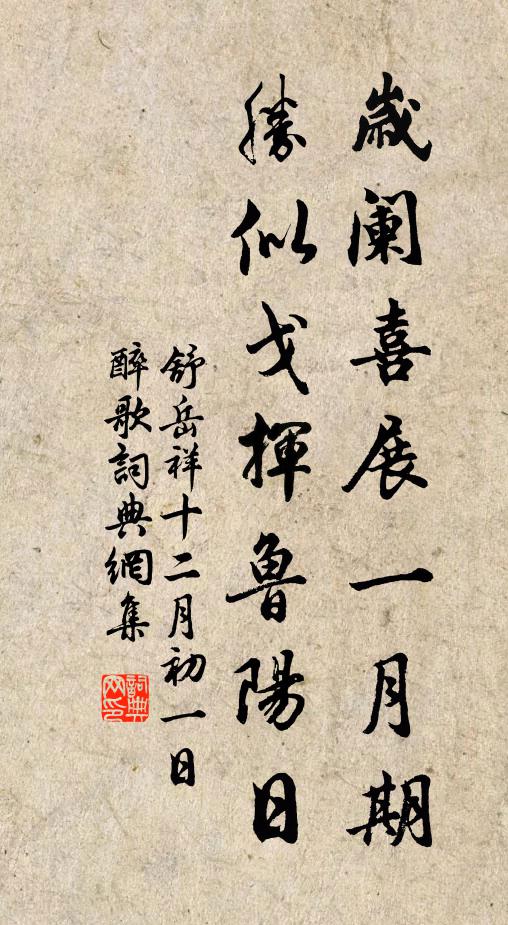 歲闌喜展一月期
勝似戈揮魯陽日
舒岳祥十二月初一日
醉歌詞典網集
詞典
网印